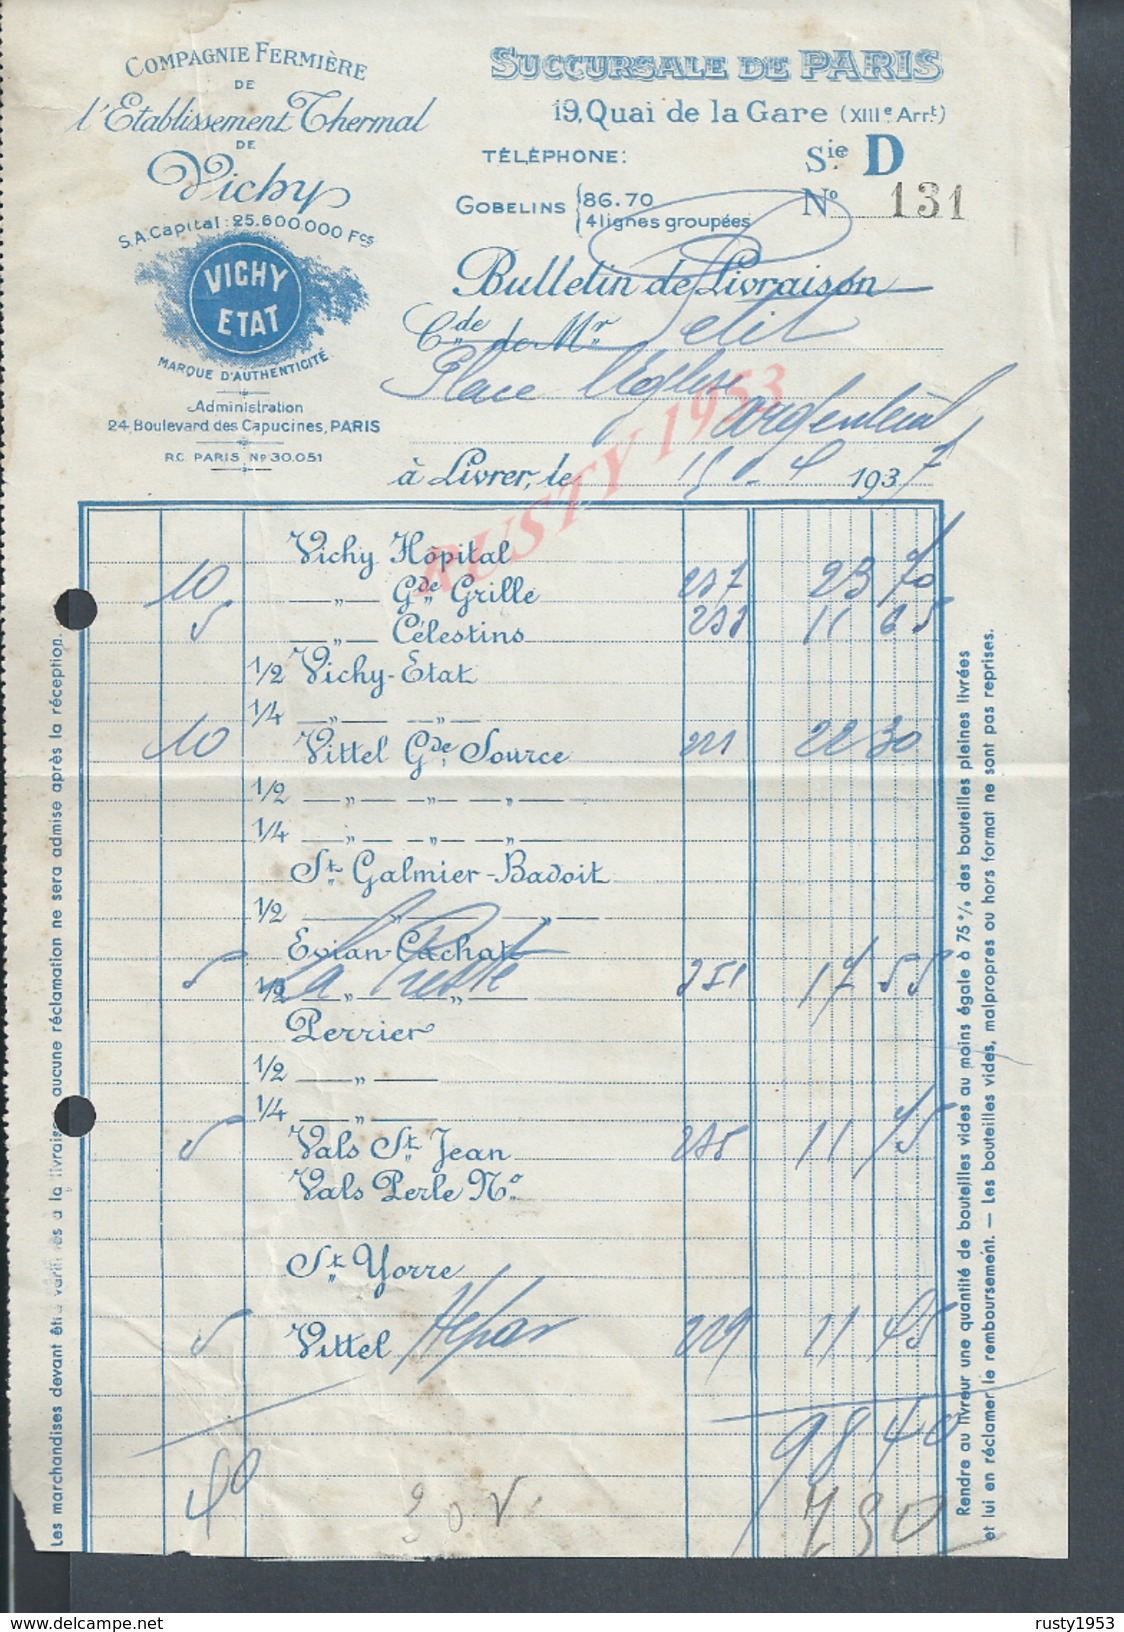 COMPAGNIE FERMIÈRE
DE
l'Etablissement Thermal
DE
Vichy
S.A. Capital : 25.600.000 Fcs
VICHY
ETAT
MARQUE D'AUTHENTICITÉ
Administration
24, Boulevard des Capucines, PARIS
R.C. PARIS No 30.051
SUCCURSALE DE PARIS
19, Quai de la Gare (XIIIe Arrt)
TÉLÉPHONE:
Sie D
GOBELINS { 86.70
4 lignes groupées
No 131
Bulletin de Livraison
Cde de Mr Petit
Place l'Eglise
Argenteuil
à Livrer, le 15 - 4 1937
RUSTY 1953
Vichy Hôpital
10 —„— Gde Grille 237 23 70
5 —„— Célestins 233 11 65
1/2 Vichy-Etat
1/4 —„— —„—
10 Vittel Gde Source 221 22 30
1/2 —„— —„— —„—
1/4 —„— —„— —„—
St Galmier-Badoit
1/2 —„— —„—
Evian-Cachat
5 1/2 —„— —„— La Preste 351 17 55
Perrier
1/2 —„—
1/4 —„—
5 Vals St Jean 235 11 75
Vals Perle No
St Yorre
5 Vittel Hépar 229 11 45
40 98 40
30 V. 730
Les marchandises devant être vérifiées à la livraison aucune réclamation ne sera admise après la réception.
Rendre au livreur une quantité de bouteilles vides au moins égale à 75% des bouteilles pleines livrées
et lui en réclamer le remboursement. — Les bouteilles vides, malpropres ou hors format ne sont pas reprises.
rusty1953